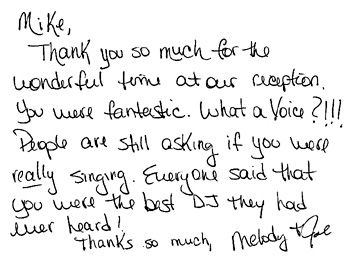 Mike,
Thank you so much for the
wonderful time at our reception.
You were fantastic. What a Voice?!!!
People are still asking if you were
really singing. Everyone said that
you were the best DJ they had
ever heard!
Thanks so much, Melody + Joe